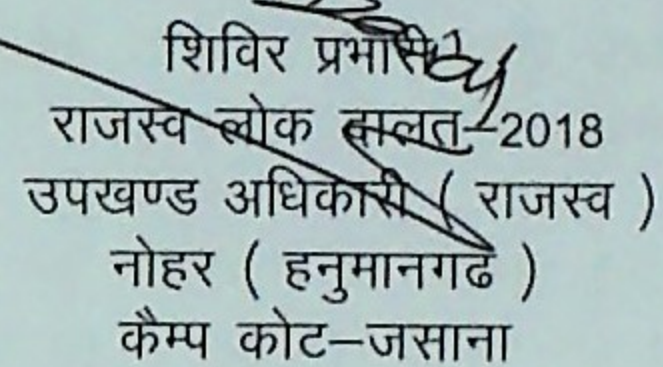 शिविर प्रभारी
राजस्व लोक अदालत-2018
उपखण्ड अधिकारी ( राजस्व )
नोहर ( हनुमानगढ )
कैम्प कोट-जसाना